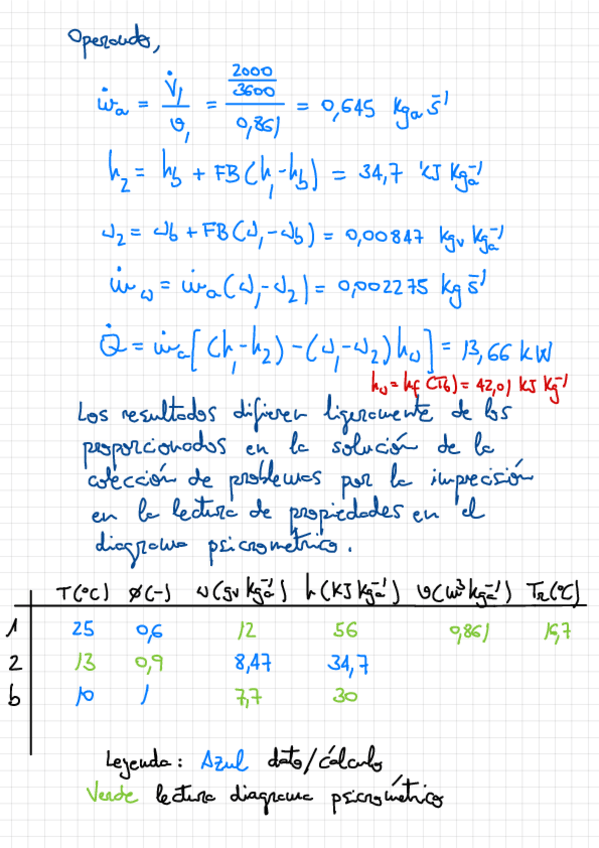 Operando,
ṁa = V̇1/v1 = (2000/3600)/0,861 = 0,645 kga s⁻¹
h2 = hb + FB(h1-hb) = 34,7 kJ kga⁻¹
ω2 = ωb + FB(ω1-ωb) = 0,00847 kgv kga⁻¹
ṁω = ṁa(ω1-ω2) = 0,002275 kg s⁻¹
Q̇ = ṁa[(h1-h2)-(ω1-ω2)hω] = 13,66 kW
hω = hf (Tb) = 42,01 kJ kg⁻¹
Los resultados difieren ligeramente de los
proporcionados en la solución de la
colección de problemas por la imprecisión
en la lectura de propiedades en el
diagrama psicrométrico.
T(ºC) ϕ(-) ω(gv kga⁻¹) h(kJ kga⁻¹) v(m³ kga⁻¹) TR(ºC)
1 25 0,6 12 56 0,861 15,7
2 13 0,9 8,47 34,7
b 10 1 7,7 30
Leyenda: Azul dato/cálculo
Verde lectura diagrama psicrométrico